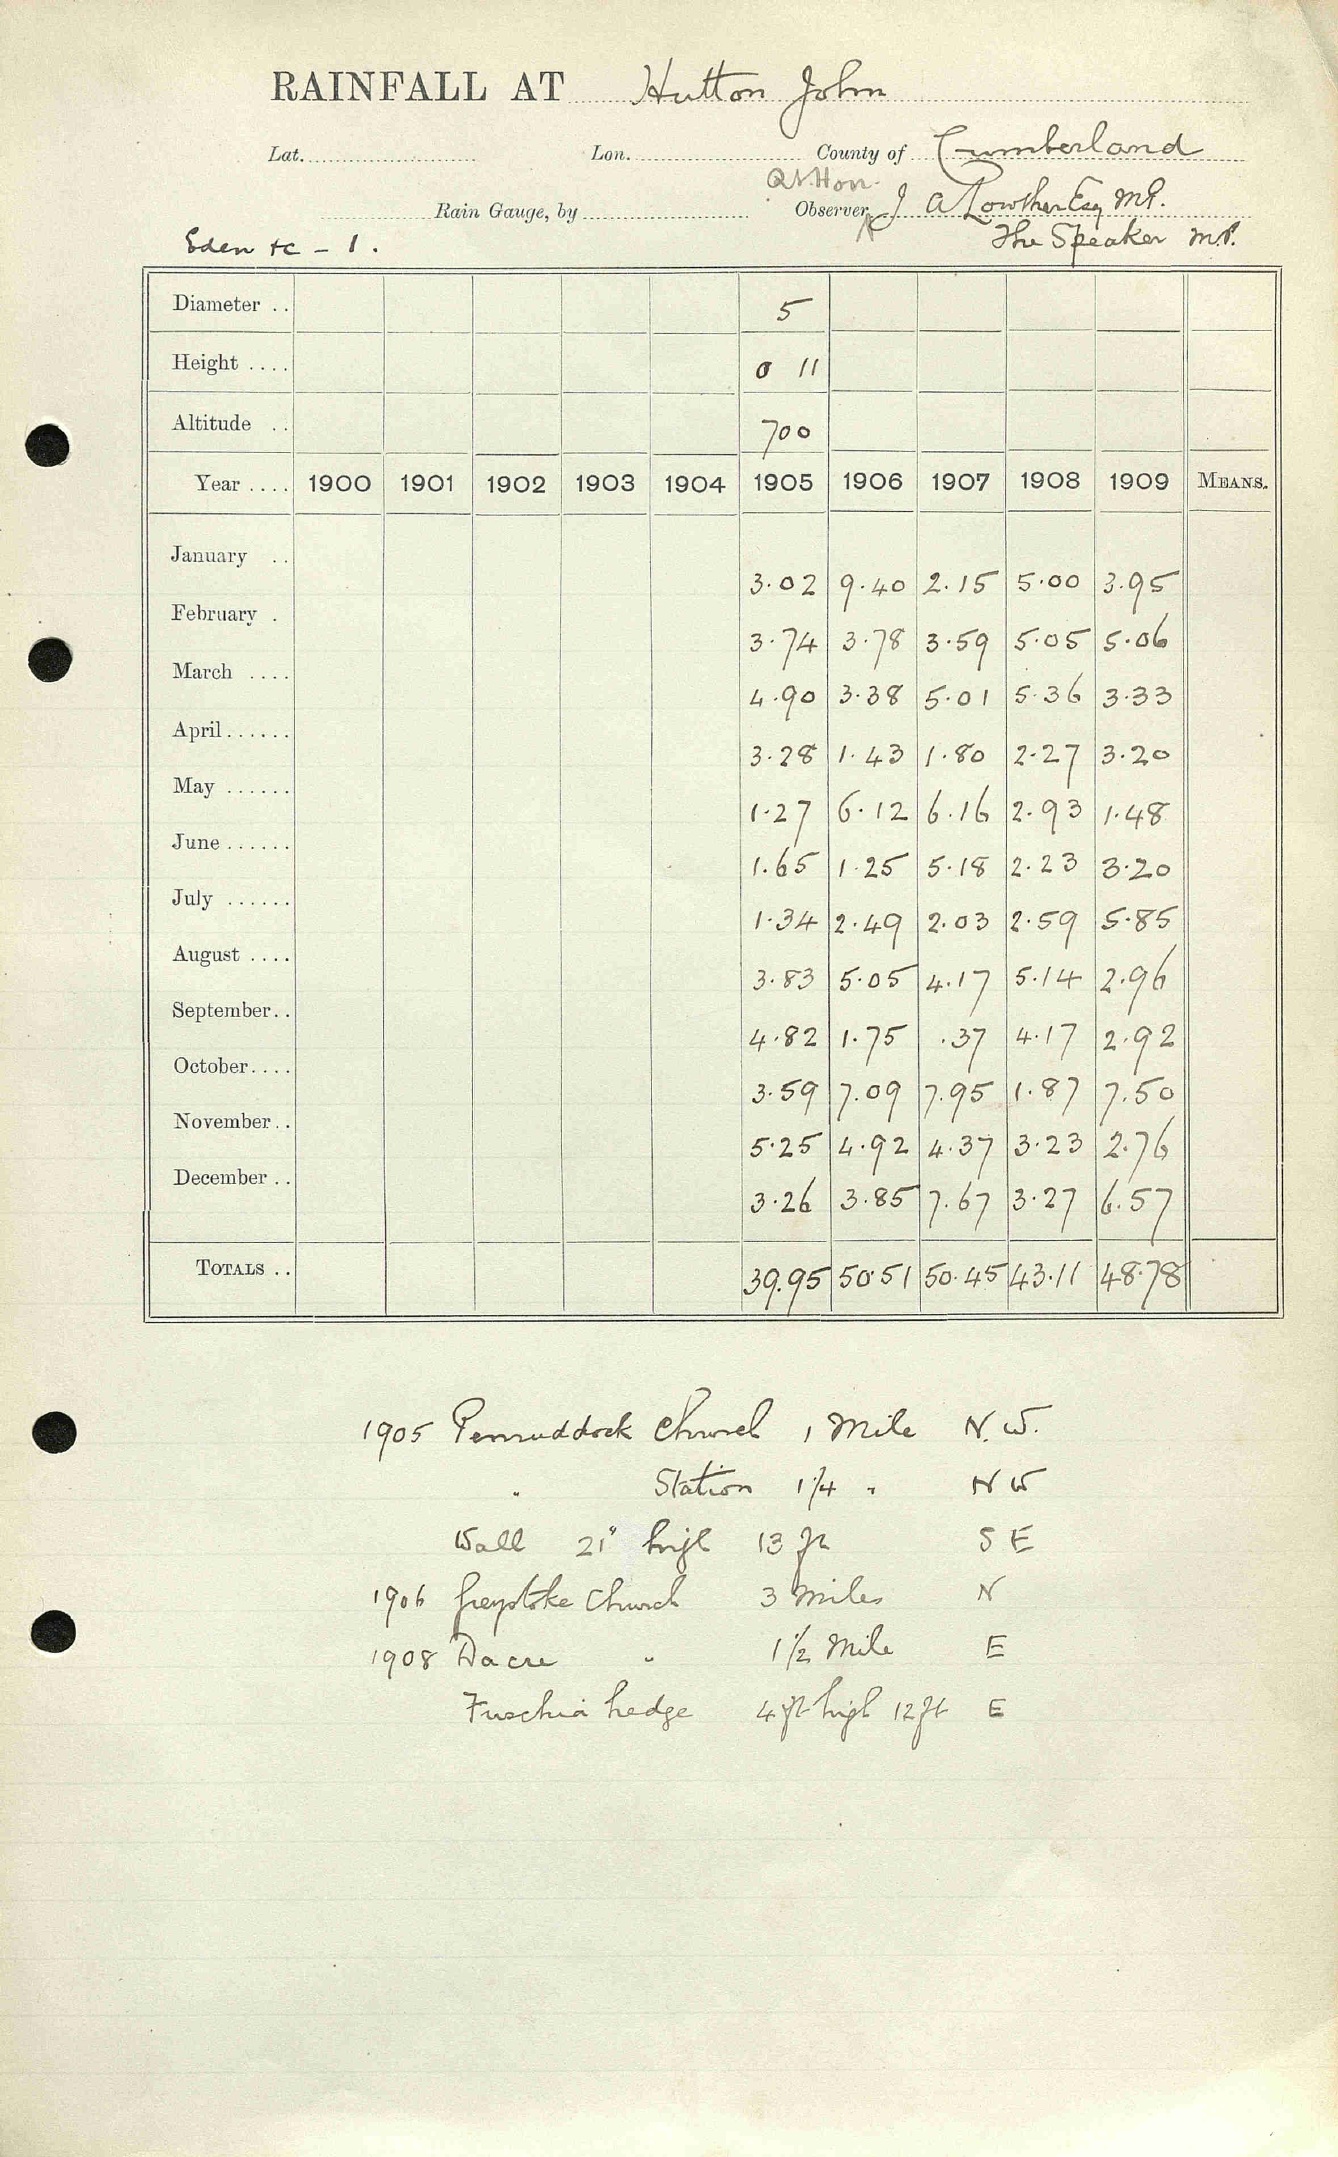 RAINFALL AT Hutton John
Lat. Lon. County of Cumberland
Rt. Hon.
Rain Gauge, by Observer, J A Lowther Esq M.P.
Eden &c - 1. The Speaker M.P.
Diameter .. 5
Height .... 0 11
Altitude .. 700
Year .... 1900 1901 1902 1903 1904 1905 1906 1907 1908 1909 MEANS.
January .. 3.02 9.40 2.15 5.00 3.95
February . 3.74 3.78 3.59 5.05 5.06
March .... 4.90 3.38 5.01 5.36 3.33
April...... 3.28 1.43 1.80 2.27 3.20
May ...... 1.27 6.12 6.16 2.93 1.48
June ...... 1.65 1.25 5.18 2.23 3.20
July ...... 1.34 2.49 2.03 2.59 5.85
August .... 3.83 5.05 4.17 5.14 2.96
September.. 4.82 1.75 .37 4.17 2.92
October.... 3.59 7.09 7.95 1.87 7.50
November.. 5.25 4.92 4.37 3.23 2.76
December .. 3.26 3.85 7.67 3.27 6.57
TOTALS .. 39.95 50.51 50.45 43.11 48.78
1905 Penruddock Church 1 Mile N.W.
" Station 1 1/4 " N W
Wall 21" high 13 ft S E
1906 Greystoke Church 3 Miles N
1908 Dacre " 1 1/2 Mile E
Fuschia hedge 4 ft high 12 ft E